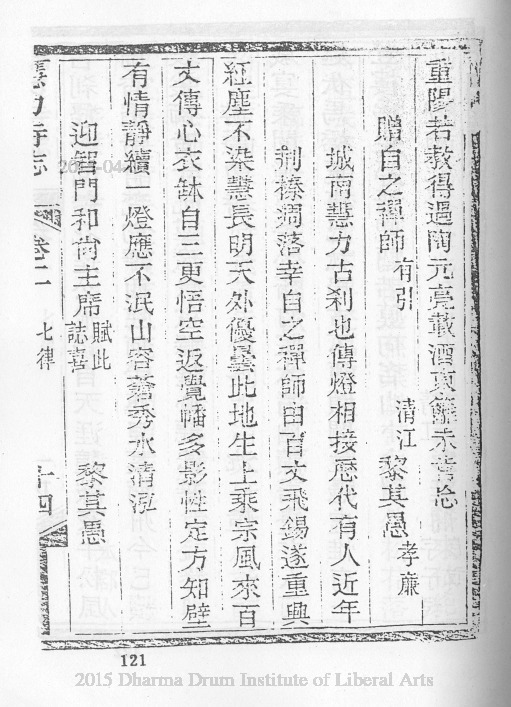 重陽若教得遇陶元亮載酒東籬未當迯
贈自之禪師有引 清江 黎其愚孝廉
城南慧力古刹也傳燈相接歷代有人近年
荆榛凋落幸自之禪師由百丈飛錫遂重興
紅塵不染慧長明天外優曇此地生上乘宗風來百
丈傳心衣缽自三更悟空返覺幡多影性定方知壁
有情靜續一燈應不泯山容蒼秀水清泓
迎智門和尚主席賦此誌喜 黎其愚
慧力寺志 卷二 七律 十四
121
2015 Dharma Drum Institute of Liberal Arts